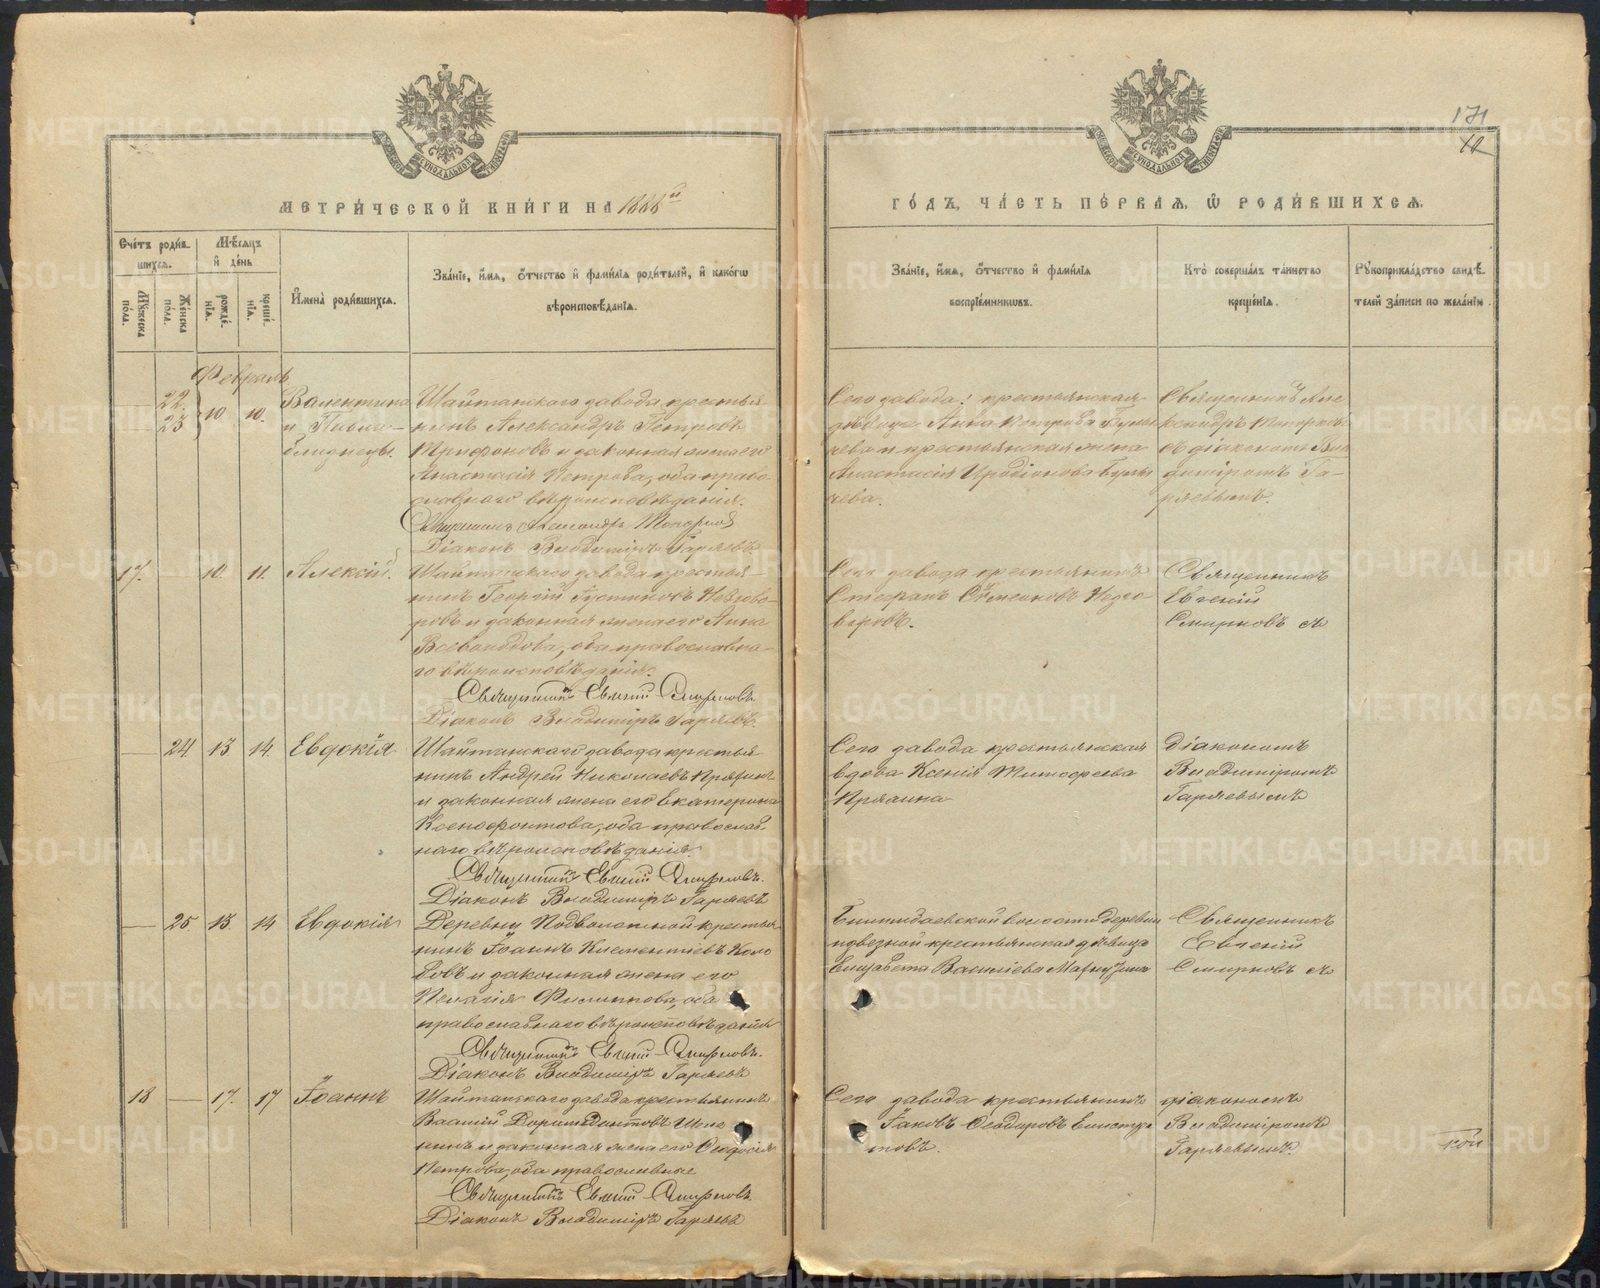 171
12
МЕТРИ́ЧЕСКОЙ КНИ́ГИ НА 1888й
ГО́ДЪ, ЧА́СТЬ ПЕ́РВАЯ, Ѽ РОДИ́ВШИХСЯ.
Сче́тъ роди́в-
шихся.
Мѣ́сяцъ
и҆ де́нь
Му́жеска
по́ла.
Же́нска
по́ла.
рожде́-
нїя.
креще́-
нїя.
И҆мена̀ роди́вшихся.
Зва́нїе, и҆́мя, ѻ҆́тчество и҆ фами́лїя роди́телей, и҆ како́гѡ
вѣроисповѣ́данїя.
Зва́нїе, и҆́мя, ѻ҆́тчество и҆ фами́лїя
воспрїе́мниковъ.
Кто̀ соверша́лъ та́инство
креще́нїя.
Рꙋкоприкла́дство свидѣ́-
телей за́писи по жела́нїю.
Февраль
22.
23
10
10.
Валентина
и
близнецы.
Шайтанскаго завода крестья
нинъ Александръ Петровъ
и законная жена его
Анастасія Петрова, оба право
славнаго вѣроисповѣданія.
Священникъ Александръ
Діаконъ Владиміръ Гаряевъ
Сего завода: крестьянская
дѣвица Анна Петрова
и крестьянская жена
Анастасія Иродіонова
Священникъ Але
ксандръ
съ діакономъ Вла
диміромъ Га-
ряевымъ.
17.
10.
11.
Алексій.
Шайтанскаго завода крестья-
нинъ Георгій Іустиновъ
и законная жена его Анна
Всеволодова, оба православна-
го вѣроисповѣданія.
Священникъ Евгеній Смирновъ
Діаконъ Владиміръ Гаряевъ
Сего завода крестьянинъ
Стефанъ
Священникъ
Евгеній
Смирновъ съ
24
13
14.
Евдокія
Шайтанскаго завода крестья-
нинъ Андрей Николаевъ
и законная жена его Екатерина
Ксенофонтова, оба православ-
наго вѣроисповѣданія.
Священникъ Евгеній Смирновъ.
Діаконъ Владиміръ Гаряевъ
Сего завода крестьянская
вдова Ксенія Тимофеева
Пряхина
діакономъ
Владиміромъ
Гаряевымъ
25
13.
14
Евдокія
Деревни Подволошной крестья-
нинъ Іоаннъ Климентіевъ
и законная жена его
Пелагія Филиппова, оба
православнаго вѣроисповѣданія
Священникъ Евгеній Смирновъ.
Діаконъ Владиміръ Гаряевъ
Билимбаевской волости деревни
крестьянская дѣвица
Елизавета Васильева
Священникъ
Евгеній
Смирновъ съ
18
17.
17
Іоаннъ
Шайтанскаго завода крестьянинъ
Василій Доримедонтовъ
и законная жена его Ѳеодосія
Петрова, оба православные
Священникъ Евгеній Смирновъ.
Діаконъ Владиміръ Гаряевъ
Сего завода крестьянинъ
Іаковъ Ѳеодоровъ
діакономъ
Владиміромъ
Гаряевымъ.
METRIKI.GASO-URAL.RU